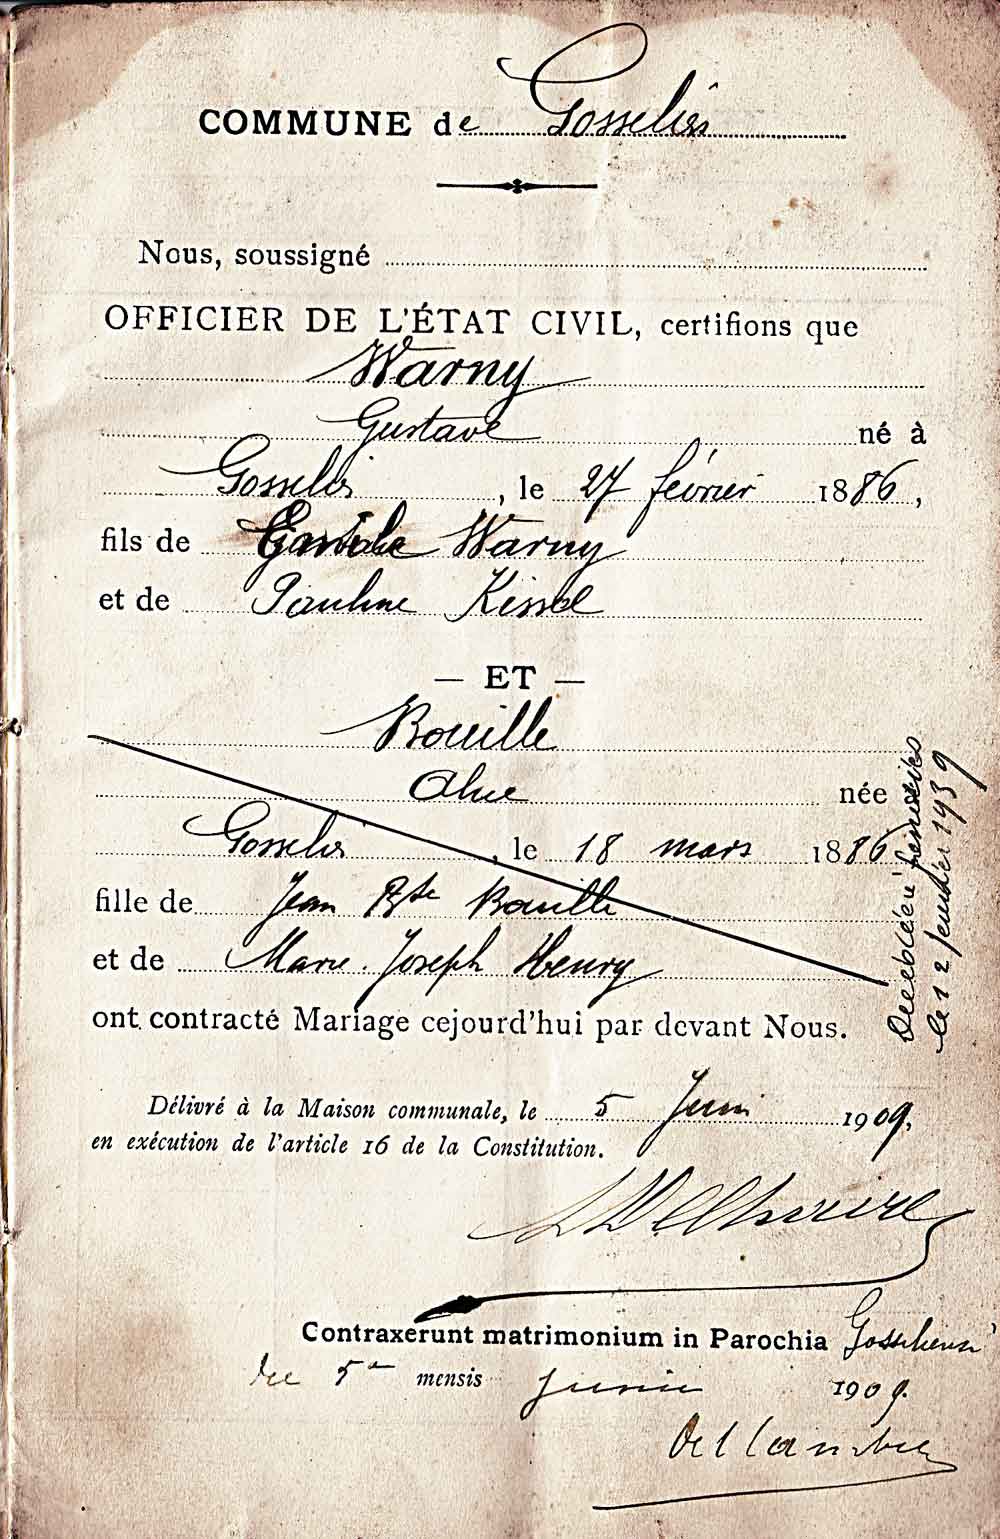 COMMUNE de Gosselies
Nous, soussigné
OFFICIER DE L'ÉTAT CIVIL, certifions que
Warny
Gustave né à
Gosselies, le 27 février 1886,
fils de Warny
et de Pauline Kissel
— ET —
Bouille
Aline née
Gosselies, le 18 mars 1886
fille de Jean Bte Bouille
et de Marie Joseph Henry
ont contracté Mariage cejourd'hui par devant Nous.
Délivré à la Maison communale, le 5 Juin 1909,
en exécution de l'article 16 de la Constitution.
Contraxerunt matrimonium in Parochia
die 5a mensis Junii 1909.
le 12 1939